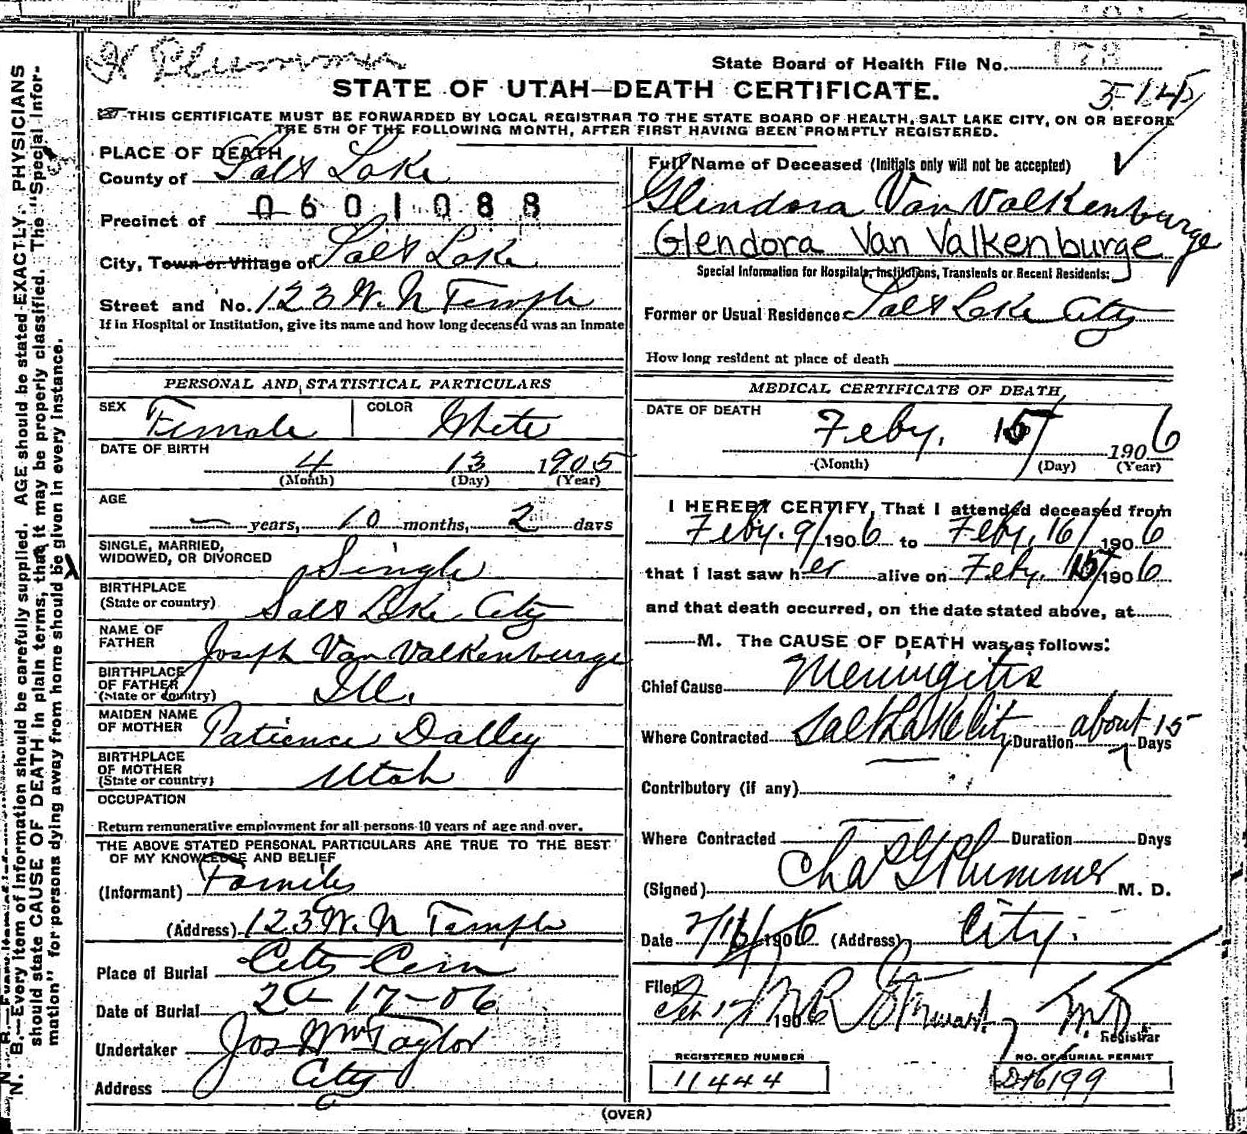 H Plummer
State Board of Health File No. 178
STATE OF UTAH—DEATH CERTIFICATE.
5145
THIS CERTIFICATE MUST BE FORWARDED BY LOCAL REGISTRAR TO THE STATE BOARD OF HEALTH, SALT LAKE CITY, ON OR BEFORE
THE 5TH OF THE FOLLOWING MONTH, AFTER FIRST HAVING BEEN PROMPTLY REGISTERED.
PLACE OF DEATH
County of Salt Lake
Precinct of 0601088
City, Town or Village of Salt Lake
Street and No. 123 W. N Temple
If in Hospital or Institution, give its name and how long deceased was an Inmate
PERSONAL AND STATISTICAL PARTICULARS
SEX Female COLOR White
DATE OF BIRTH
4 13 1905
(Month) (Day) (Year)
AGE
— years, 10 months, 2 days
SINGLE, MARRIED,
WIDOWED, OR DIVORCED Single
BIRTHPLACE
(State or country) Salt Lake City
NAME OF
FATHER Joseph Van Valkenburge
BIRTHPLACE
OF FATHER
(State or country) Ill.
MAIDEN NAME
OF MOTHER Patience Dalley
BIRTHPLACE
OF MOTHER
(State or country) Utah
OCCUPATION
Return remunerative employment for all persons 10 years of age and over.
THE ABOVE STATED PERSONAL PARTICULARS ARE TRUE TO THE BEST
OF MY KNOWLEDGE AND BELIEF
(Informant) Family
(Address) 123 W. N Temple
Place of Burial City Cem
Date of Burial 2 17-06
Undertaker Jos Wm Taylor
Address City
Full Name of Deceased (Initials only will not be accepted)
Glendora Van Valkenburge
Glendora Van Valkenburge
Special Information for Hospitals, Institutions, Transients or Recent Residents:
Former or Usual Residence Salt Lake City
How long resident at place of death
MEDICAL CERTIFICATE OF DEATH
DATE OF DEATH
Feby. 15/ 1906
(Month) (Day) (Year)
I HEREBY CERTIFY, That I attended deceased from
Feby. 9/ 1906 to Feby. 16/ 1906
that I last saw her alive on Feby. 15/ 1906
and that death occurred, on the date stated above, at
M. The CAUSE OF DEATH was as follows:
Chief Cause Meningitis
Where Contracted Salt Lake City Duration about 15 Days
Contributory (if any)
Where Contracted Duration Days
(Signed) Chas G Plummer M. D.
Date 2/16/1906 (Address) City.
Filed Feb 17/ 1906 M R Stewart, M.D. Registrar
REGISTERED NUMBER
11444
NO. OF BURIAL PERMIT
D16199
(OVER)
N. B.—Every item of information should be carefully supplied. AGE should be stated EXACTLY. PHYSICIANS
should state CAUSE OF DEATH in plain terms, that it may be properly classified. The "Special Infor-
mation" for persons dying away from home should be given in every instance.